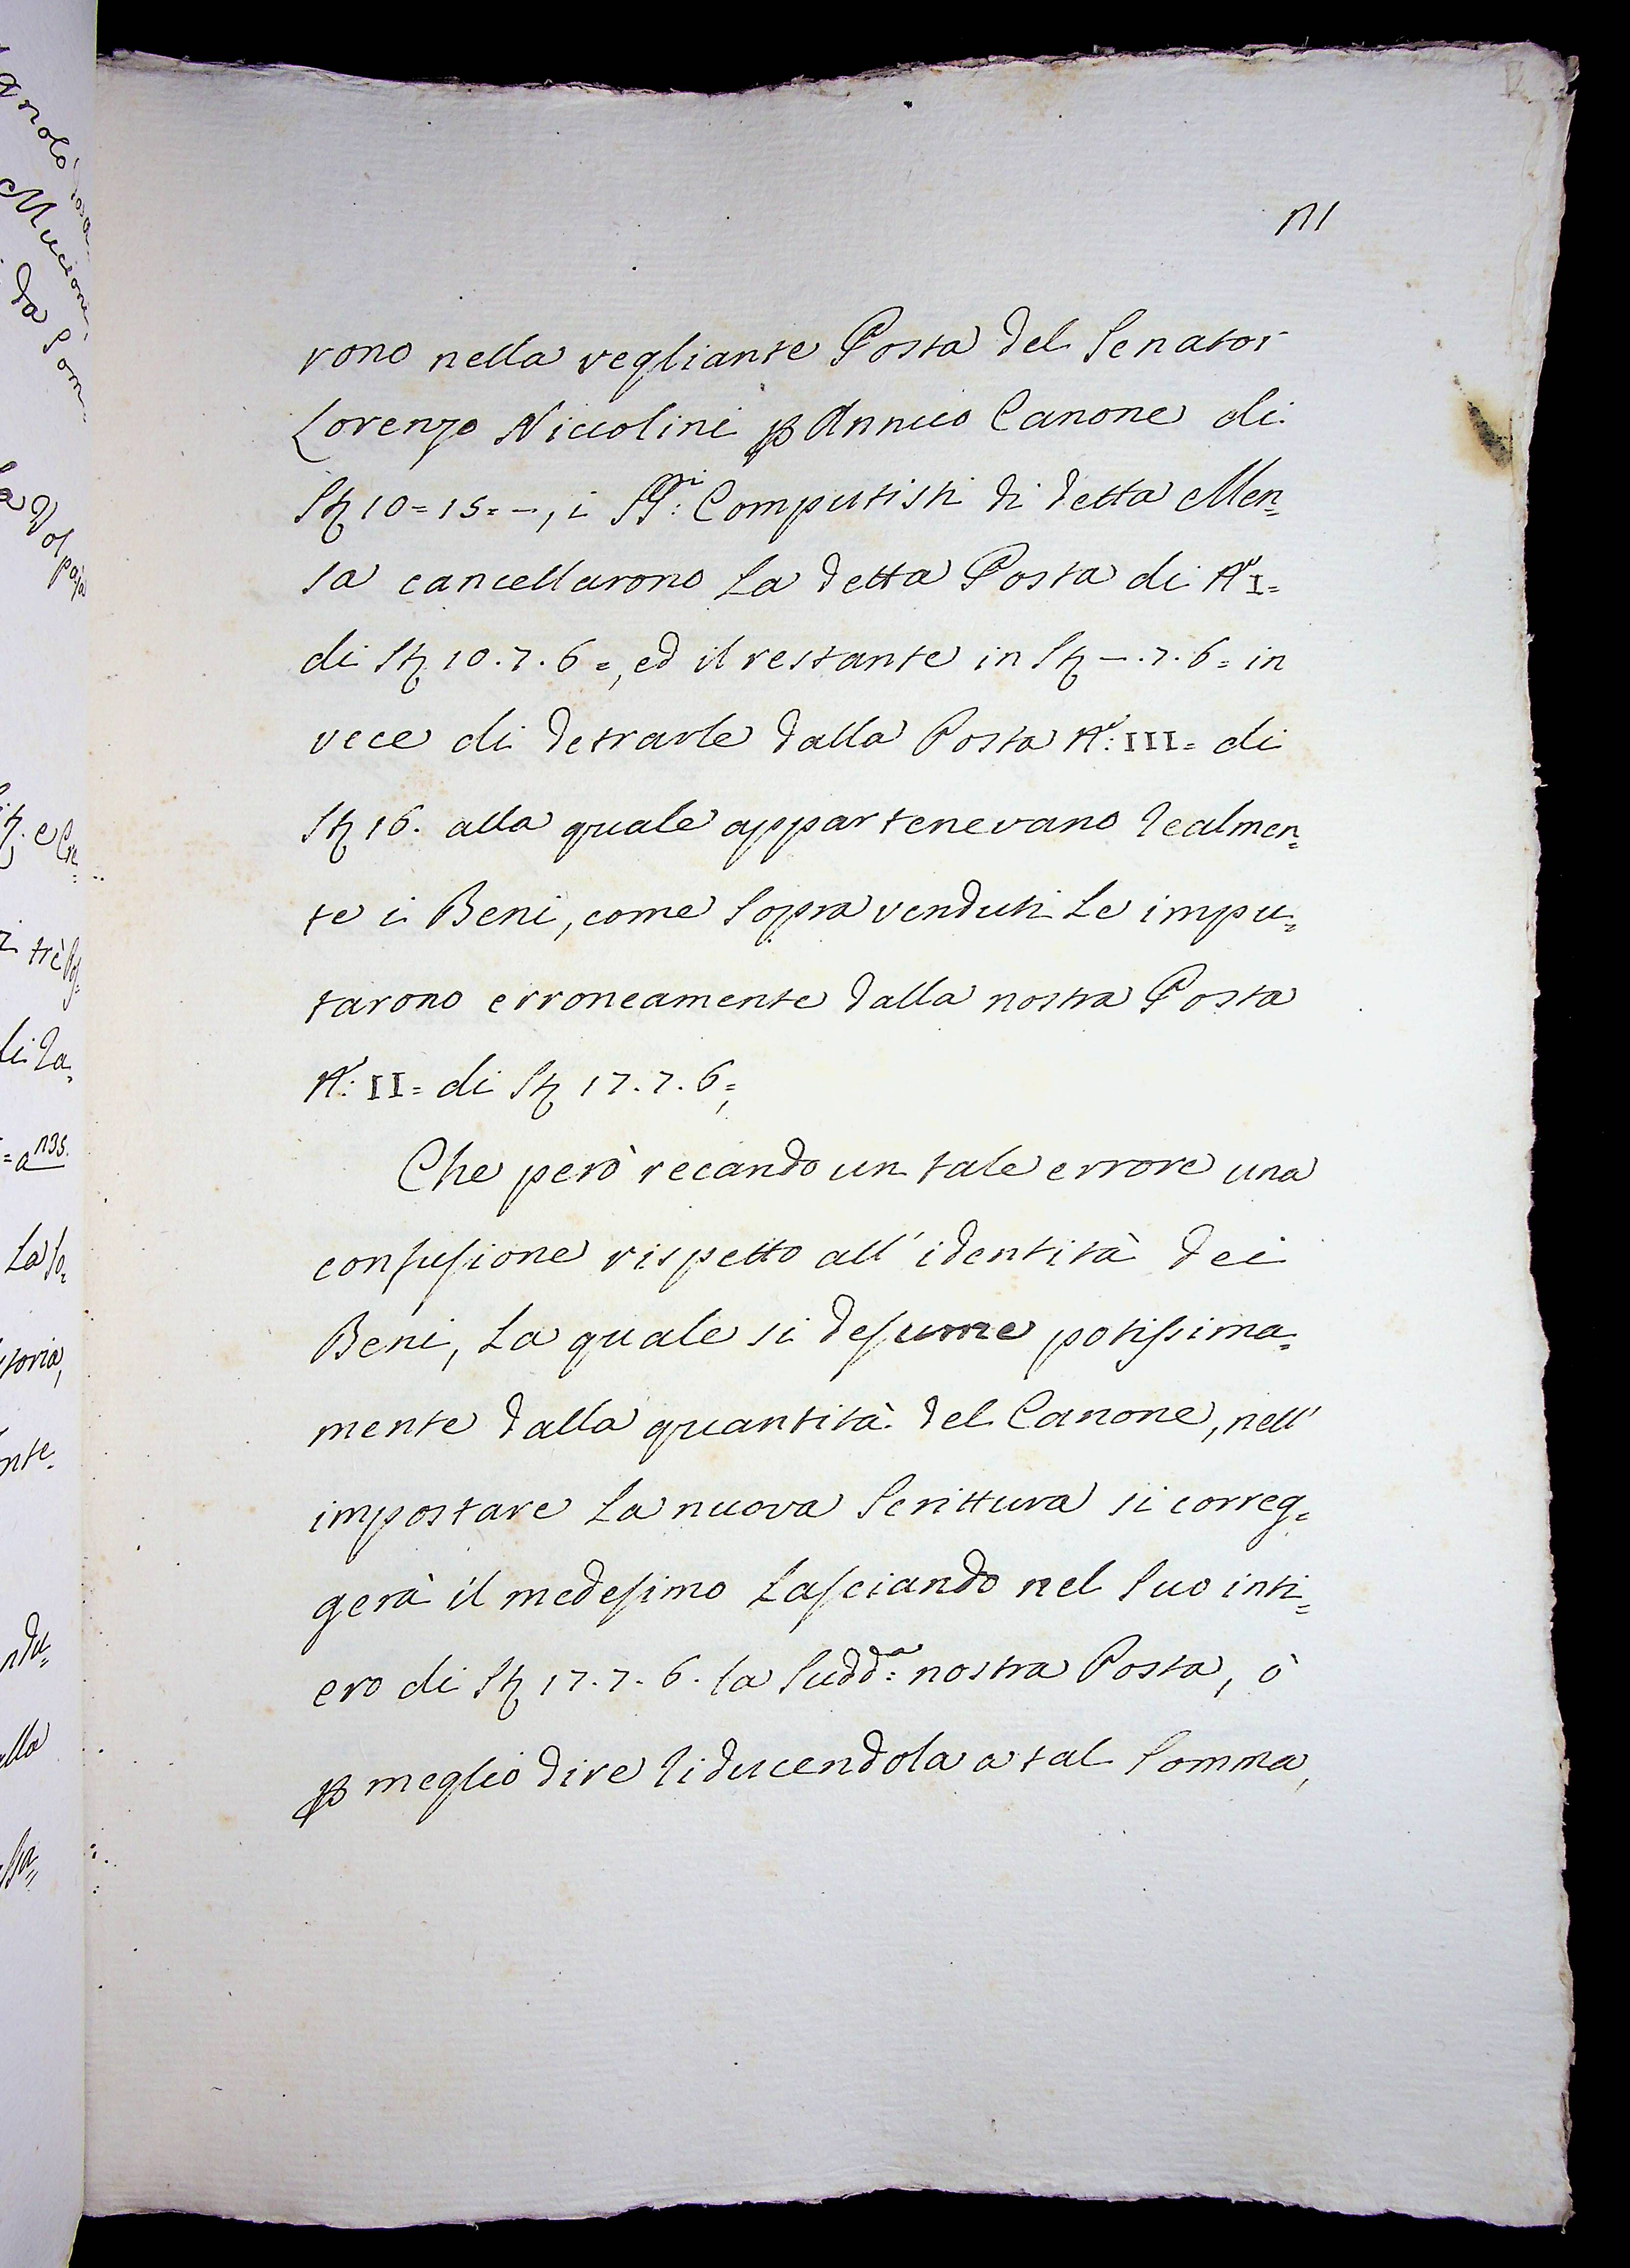 111
rono nella vegliante Posta del Senator
Lorenzo Niccolini ꝑ Annuo Canone di
Stẓ 10=15=-, i SS:ri Computisti di detta Men=
sa cancellarono La detta Posta di No I=
di 10.7.6=, ed il restante in -.7.6= in
vece di detrarle dalla Posta No: III= di
16. alla quale appartenevano Realmen=
te i Beni, come Sopra venduti Le impu=
tarono erroneamente dalla nostra Posta
No: II= di 17.7.6=,
Che però recando un tale errore una
confusione rispetto all' identità dei
Beni, La quale si desume potissima=
mente dalla quantità del Canone, nell'
impostare La nuova Scrittura si correg=
gerà il medesimo Lasciando nel Suo inti=
ero di 17.7.6. la Sudd:a nostra Posta, ò
ꝑ meglio dire Riducendola a tal Somma,